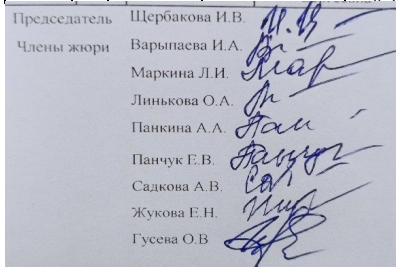 Председатель Щербакова И.В.
Члены жюри Варыпаева И.А.
Маркина Л.И.
Линькова О.А.
Панкина А.А.
Панчук Е.В.
Садкова А.В.
Жукова Е.Н.
Гусева О.В